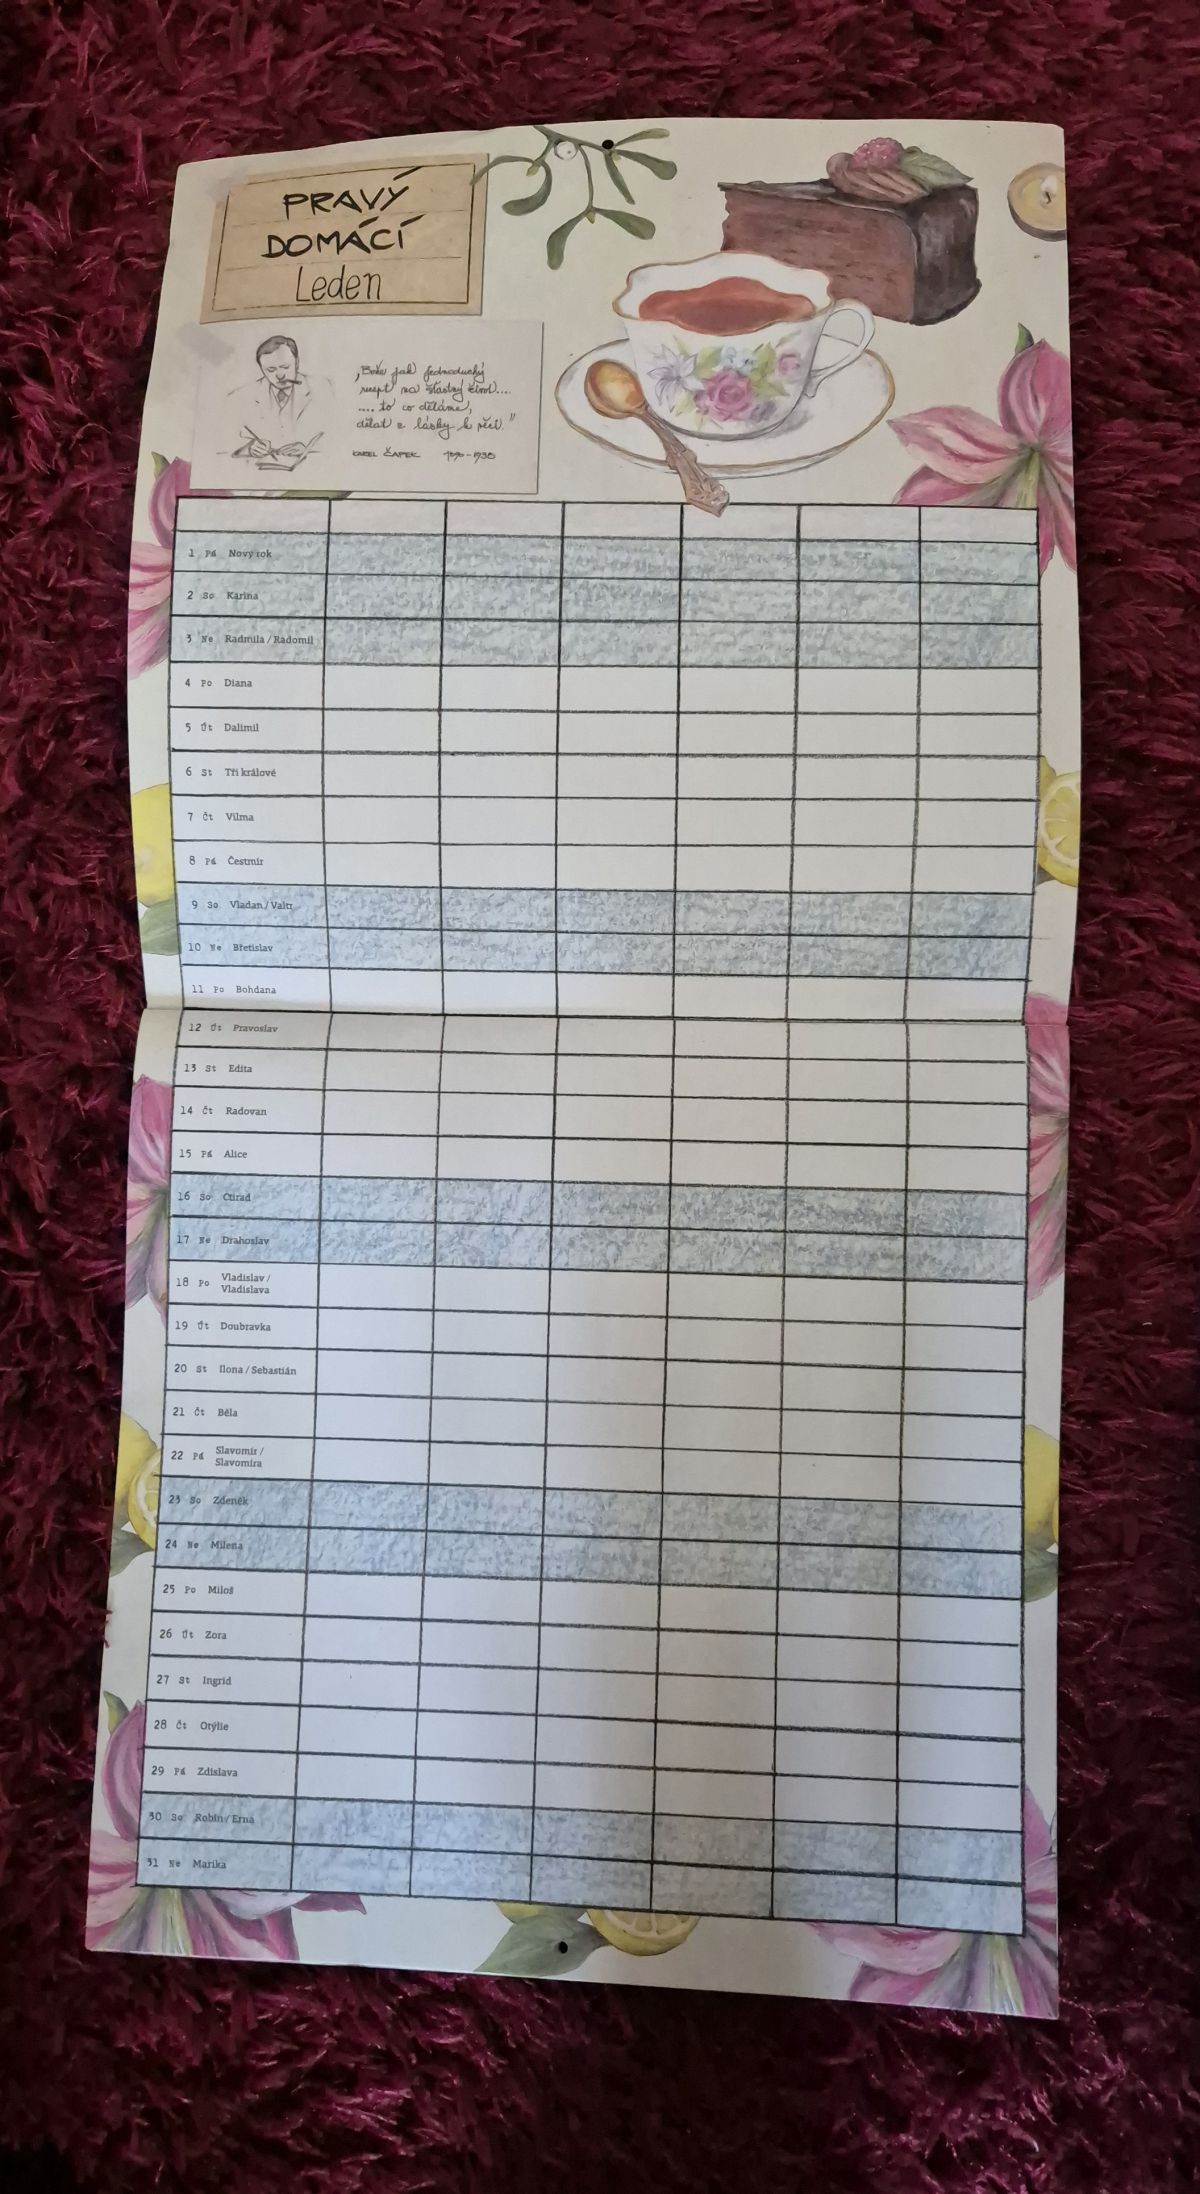 PRAVÝ
DOMÁCÍ
Leden
„Bože jak jednoduchý
recept na šťastný život....
.... to co děláme,
dělat z lásky k věci."
KAREL ČAPEK 1890-1938
1 Pá Nový rok
2 So Karina
3 Ne Radmila / Radomil
4 Po Diana
5 Út Dalimil
6 St Tři králové
7 Čt Vilma
8 Pá Čestmír
9 So Vladan / Valtr
10 Ne Břetislav
11 Po Bohdana
12 Út Pravoslav
13 St Edita
14 Čt Radovan
15 Pá Alice
16 So Ctirad
17 Ne Drahoslav
18 Po Vladislav /
Vladislava
19 Út Doubravka
20 St Ilona / Sebastián
21 Čt Běla
22 Pá Slavomír /
Slavomíra
23 So Zdeněk
24 Ne Milena
25 Po Miloš
26 Út Zora
27 St Ingrid
28 Čt Otýlie
29 Pá Zdislava
30 So Robin / Erna
31 Ne Marika